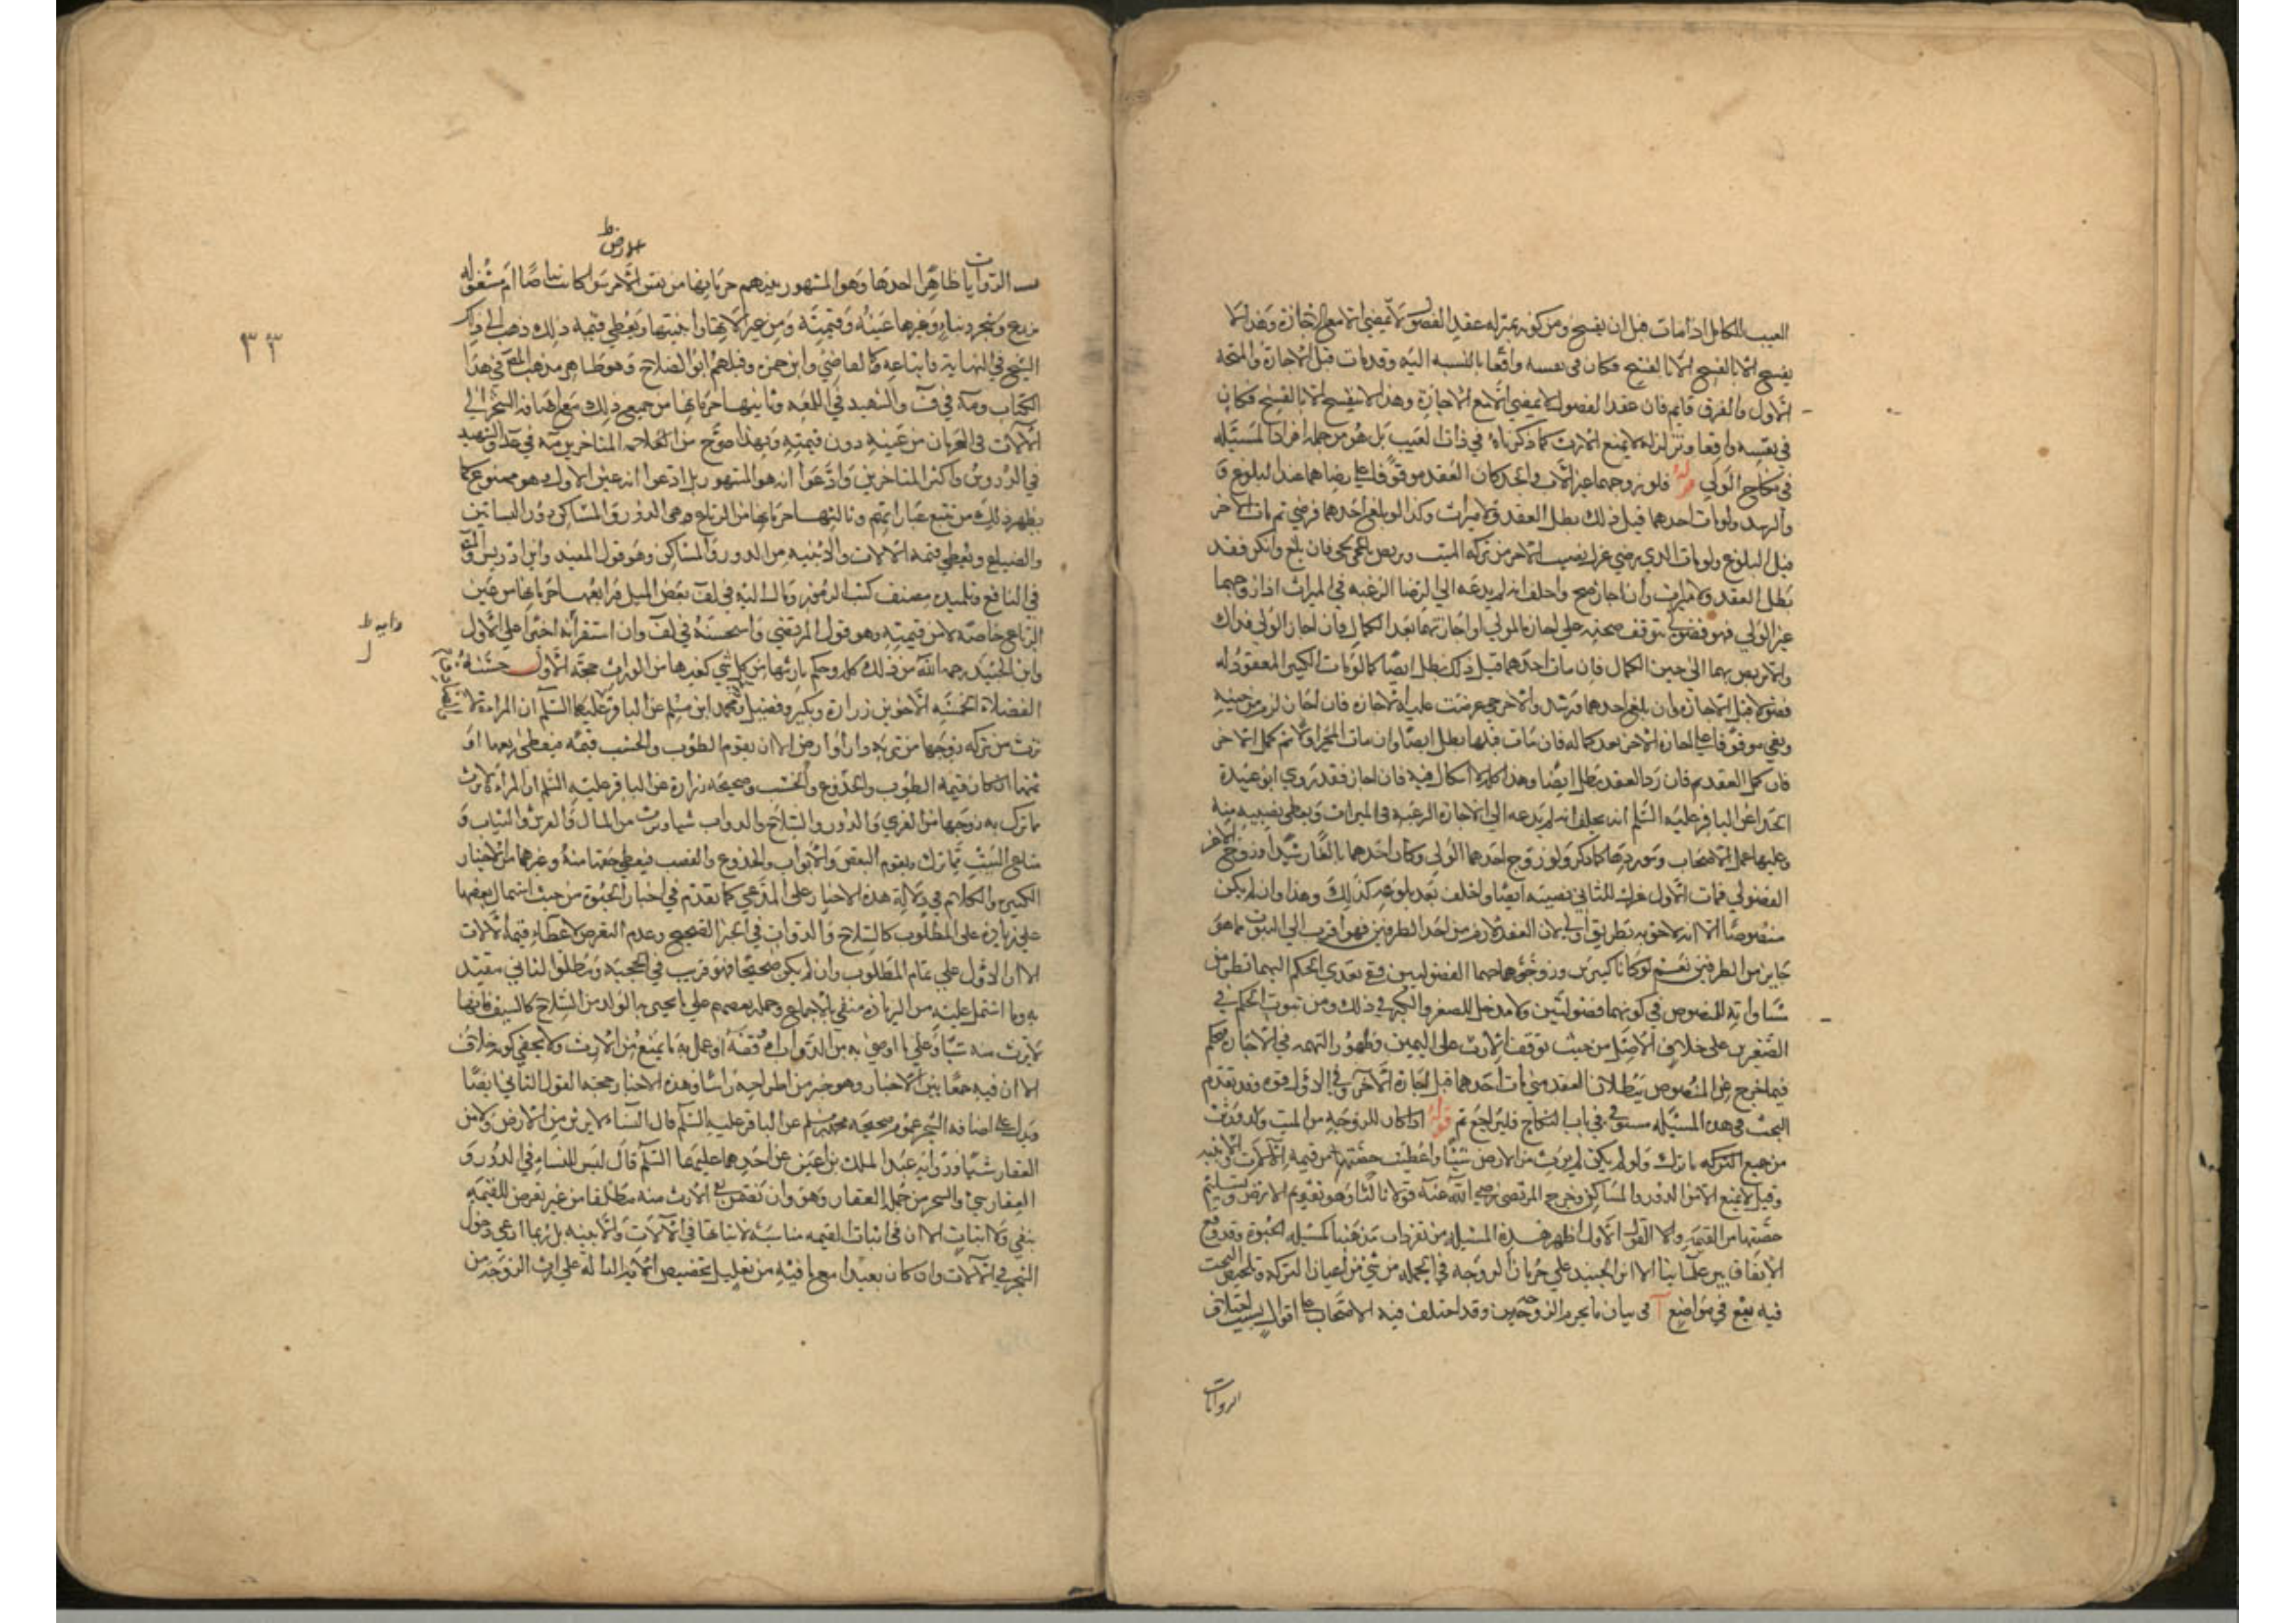 العيب للكامل اذا مات قبل ان يفسخ ومن كونه بمنزلة عقد الفضولي لا يمضي الا مع الاجازة وهذا لا
ينفسخ الا بالفسخ فكان في نفسه واقعا بالنسبه اليه وقد مات قبل الاجازة والمتجه
الاول والفرق قايم فان عقد الفضولي لا يمضي الا مع الاجازة وهذا لا ينفسخ الا بالفسخ فكان
في نفسه واقعا وتزلزله لا يمنع الارث كما ذكرناه في ذات العيب بل هو من جمله افراد المسئله
في نكاح الولي قوله فلو زوجهما غير الاب والجد كان العقد موقوفا على رضاهما عند البلوغ و
والرشد ولو مات احدهما قبل ذلك بطل العقد ولا ميراث وكذا لو بلغ احدهما فرضي ثم مات الاخر
قبل البلوغ ولو مات الذي رضي عزل نصيب الاخر من تركه الميت وتربص بالحي فان بلغ وانكر فقد
بطل العقد ولا ميراث وان اجاز صح واحلف انه لم يدعه الى الرضا الرغبه في الميراث اذا زوجهما
غير الولي فهو فضولي تتوقف صحته على اجازة المولي او اجازتهما بعد الكمال فان اجاز الولي فذاك
والا تربص بهما الى حين الكمال فان مات احدهما قبل ذلك بطل ايضا كما لو مات الكبير المعقود له
فضولا قبل الاجازة وان بلغ احدهما ورشد والاخر حي عرضت عليه الاجازه فان اجاز لزم من جهته
وبقي موقوفا على اجازة الاخر بعد كماله فان مات قبلها بطل ايضا وان مات المجيز اولا ثم كمل الاخر
فان كمل العقد ثم فان رد العقد بطل ايضا وهذا كله لا اشكال فيه فان اجاز فقد روي ابو عبيدة
الحذا عن الباقر عليه السلم انه يحلف انه لم يدعه الي الاجازة الرغبة في الميراث ويعطي نصيبه منه
وعليها عمل الاصحاب وموردها كما ذكر ولو زوج احدهما الولي وكان احدهما بالغا رشيدا وزوج الاخر
الفضولي فمات الاول عزل للثاني نصيبه ايضا واحلف بعد بلوغه كذلك وهذا وان لم يكن
منصوصا الا انه لاحق به بطريق اولي لان العقد لازم من احد الطرفين فهو اقرب الى الثبوت مما هو
جايز من الطرفين نعم لو كانا كبيرين وزوجهما الفضوليين ففي تعدي الحكم اليهما نظر من
مساواته للمنصوص في كونهما فضوليين ولا مدخل للصغر والكبر في ذلك ومن ثبوت الحكم في
الصغيرين على خلاف الاصل من حيث توقف الارث على اليمين وظهور التهمه في الاجازة فيحكم
فيما خرج عن المنصوص ببطلان العقد متي مات احدهما قبل اجازة الاخر وفي الاول قوة وقد تقدم
البحث في هذه المسئله مستوفي في باب النكاح فليراجع ثم قوله اذا كان للزوجه من الميت ولد ورثت
من جميع التركه ما ترك ولو لم يكن لم يرث من الارض شيئا واعطيت حصتها من قيمة الالات والابنيه
وقيل لا يمنع الا من الدور والمساكن وخرج المرتضى رضي الله عنه قولا ثالثا وهو تقويم الارض وتسليم
حصتها من القيمة والقول الاول اظهر هذه المسئله من تفردات مذهبنا كمسئله الحبوة وقد وقع
الاتفاق بين علمائنا الا ابن الجنيد على حرمان الزوجه في الجمله من شي من اعيان التركه وتلخيص البحث
فيه يقع في مواضع آ في بيان ما يحرم الزوجه منه وقد اختلف فيه الاصحاب على اقوال بسبب اختلاف
الروايات
الارض ظ
الروايات ظاهرا احدها وهو المشهور بينهم حرمانها من نفس الارض سواء كانت بياضا ام مشغوله
بزرع وشجر وبناء وغيرها عينا وقيمة ومن عين الاتها وابنيتها وتعطي قيمه ذلك ذهب الى ذلك
الشيخ في النهاية واتباعه كالقاضي وابن حمزه وقبلهم ابو الصلاح وهو ظاهر مذهب المصنف في هذا
الكتاب ومه في ف والشهيد في اللمعه وثانيها حرمانها من جميع ذلك مع اضافه الشجر الى
الالات في الحرمان من عينه دون قيمته وبهذا صرح من العلامه المتاخرين مه في عد والشهيد
في الدروس واكثر المتاخرين وادعوا انه هو المشهور بل ادعوا انه عين الاول وهو ممنوع كما
يظهر ذلك من تتبع عباراتهم وثالثها حرمانها من الرباع وهي الدور والمساكن دون البساتين
والضياع وتعطي قيمه الالات والابنيه من الدور والمساكن وهو قول المفيد وابن ادريس والمصنف
في النافع وتلميذه مصنف كشف الرموز ومال اليه في لف بعض الميل ورابعها حرمانها من عين
الرباع خاصه لا من قيمته وهو قول المرتضي واستحسنه في لف وان استقر رايه اخيرا على الاول
وابن الجنيد رحمه الله منع ذلك كله وحكم بارثها من كل شي كغيرها من الوراث حجة الاول حسنه
الفضلاء الخمسه الاخوين زرارة وبكير وفضيل ومحمد ابن مسلم عن الباقر عليهما السلم ان المراءة لا
ترث من تركه زوجها من تربة دار او ارض الا ان يقوم الطوب والخشب قيمه فيعطي ربعها او
ثمنها ان كان قيمه الطوب والجذوع والخشب وصحيحه زرارة عن الباقر عليه السلم ان المراه لا ترث
ما ترك به زوجها من القري والدور والسلاح والدواب شيا وترث من المال والفرش والثياب و
متاع البيت مما ترك ويقوم النقض والابواب والجذوع والقصب فيعطي حقها منه وغيرهما من الاخبار
الكثيره والكلام في دلالة هذه الاخبار على المدعي كما تقدم في اخبار الحبوة من حيث اشتمال بعضها
على زيادة على المطلوب كالسلاح والدواب في الخبر الصحيح وعدم التعرض لاعطاء قيمة الالات
الا ان الاول على تمام المطلوب وان لم يكن صحيحا فهو قريب في الحجيه ومطلق الثاني مقيد
به وما اشتمل عليه من الزيادة منفي بالاجماع وحمله بعضهم على ما يحبي به الولد من السلاح كالسيف فانها
لا ترث منه شيا وعلى ما اوصي به من الدواب او وقفه او عمل به ما يمنع من الارث ولا يخفي كونه خلاف
الا ان فيه جمعا بين الاخبار وهو خير من اطراحه راسا وهذه الاخبار حجه القول الثاني ايضا
ويدل على اضافه الشجر عموم صحيحه محمد بن مسلم عن الباقر عليه السلم قال النساء لا يرثن من الارض ولا من
العقار شيا ورواية عبد الملك بن اعين عن احدهما عليهما السلم قال ليس للنساء في الدور و
العقار شي والشجر من جملة العقار وهو وان تضمن نفي الارث منه مطلقا من غير تعرض للقيمه
بنفي ولا اثبات الا ان في اثبات القيمه مناسبة لاثباتها في الالات والابنيه بل ربما ادعي دخول
الشجر في الالات وان كان بعيدا مع ما فيه من تقليل تخصيص الاية الدالة على ارث الزوجه من
٣٣